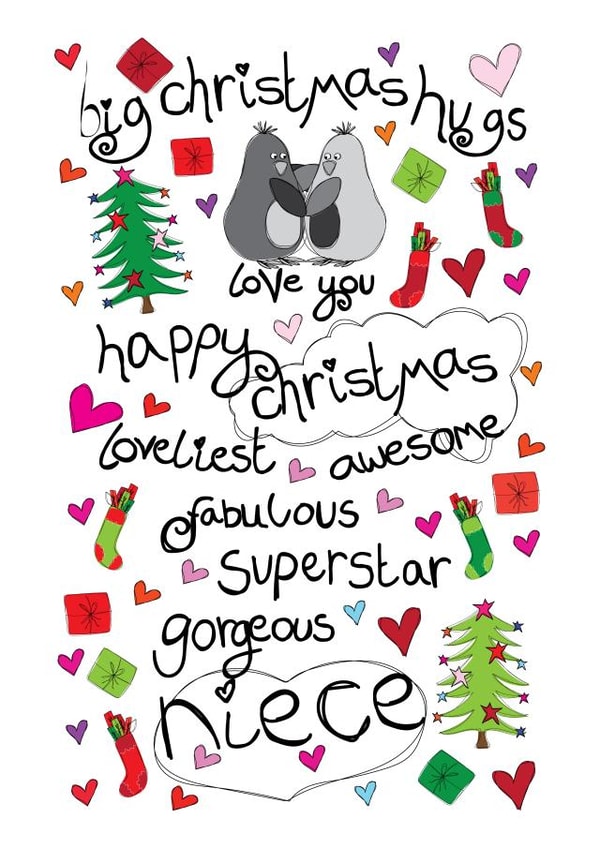 big christmas hugs
love you
happy christmas
loveliest awesome
fabulous
superstar
gorgeous
niece